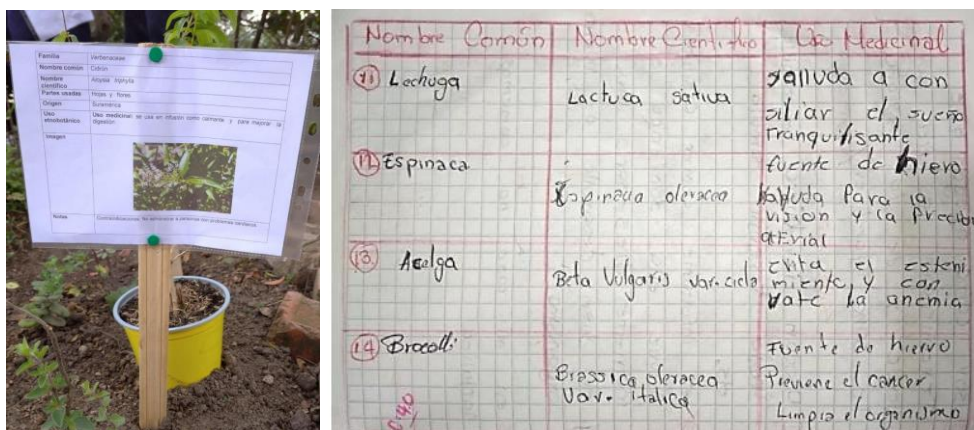 Familia Verbenaceae
Nombre común Cidrón
Nombre científico Aloysia triphylla
Partes usadas Hojas y flores
Origen Suramérica
Uso etnobotánico Uso medicinal: se usa en infusión como calmante y para mejorar la digestión
Imagen
Notas Contraindicaciones: No administrar a personas con problemas
Nombre Común Nombre Cientifico Uso Medicinal
11 Lechuga Lactuca sativa yalluda a con
siliar el sueño
Tranquilisante
12 Espinaca fuente de hiero
Espinacia oleracea Para la
vision y la Precion
aterial
13 Acelga Evita el esteni
Beta Vulgaris var. cicla miento, y con
vate la anemia
14 Brocoli Fuente de hiervo
Brassica oleracea Previene el cancer
Var. italica Limpia el organismo